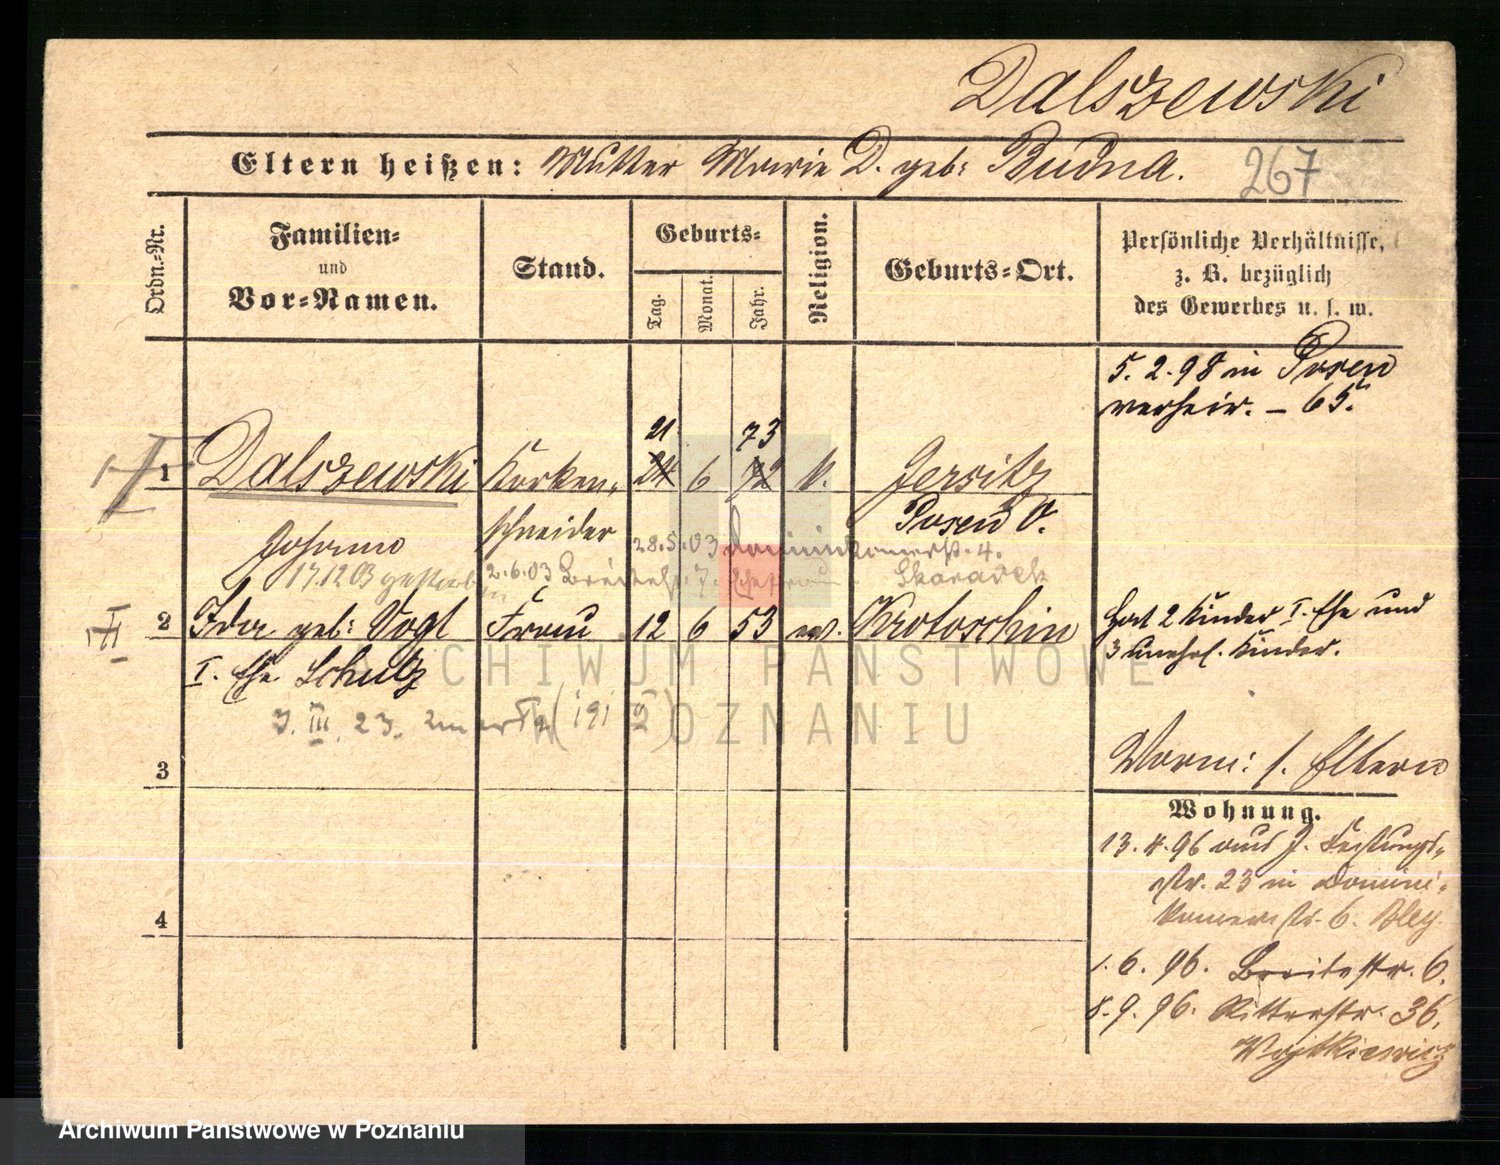 Dalszewski
Eltern heißen: Mutter Marie D. geb: Budna.
267
Ordn.-Nr.
Familien-
und
Vor-Namen.
Stand.
Geburts-
Tag.
Monat.
Jahr.
Religion.
Geburts-Ort.
Persönliche Verhältnisse,
z. B. bezüglich
des Gewerbes u. s. w.
5. 2. 98 in Posen
verheir. - 65.
21 73
1 Dalszewski Korken- 24 6 72 k. Jersitz
schneider Posen O.
Johann 28.5.03 Dominikanerstr. 4.
17.12.03 2.6.03 7. Skaradek
2 Ida geb: Vogt Frau 12 6 53 ev. Krotoschin
hat 2 Kinder I. Ehe und
3 unehel. Kinder.
I. Ehe Schulz
3. III. 23. zmarła (191
Vorm: s. Eltern
3
Wohnung.
13. 4. 96 aus J. Festungs-
str. 23 in Domini-
kanerstr. 6. Bley
4
1. 6. 96. Breitestr. 6.
8. 9. 96. Ritterstr. 36.
Wojtkiewicz
ARCHIWUM PAŃSTWOWE
W POZNANIU
Archiwum Państwowe w Poznaniu